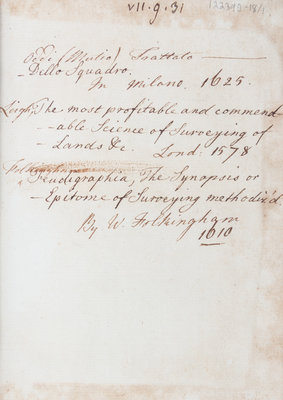 VII.9.31
122343-18/1
Oddi (Mutio) Trattato
-Dello Squadro.
In Milano. 1625.
Leigh, The most profitable and commend-
-able Science of Surveying of
-Lands &c. Lond: 1578
Folkingham
Feudigraphia, The Synopsis or
-Epitome of Surveying methodiz'd.
By W. Folkingham
1610